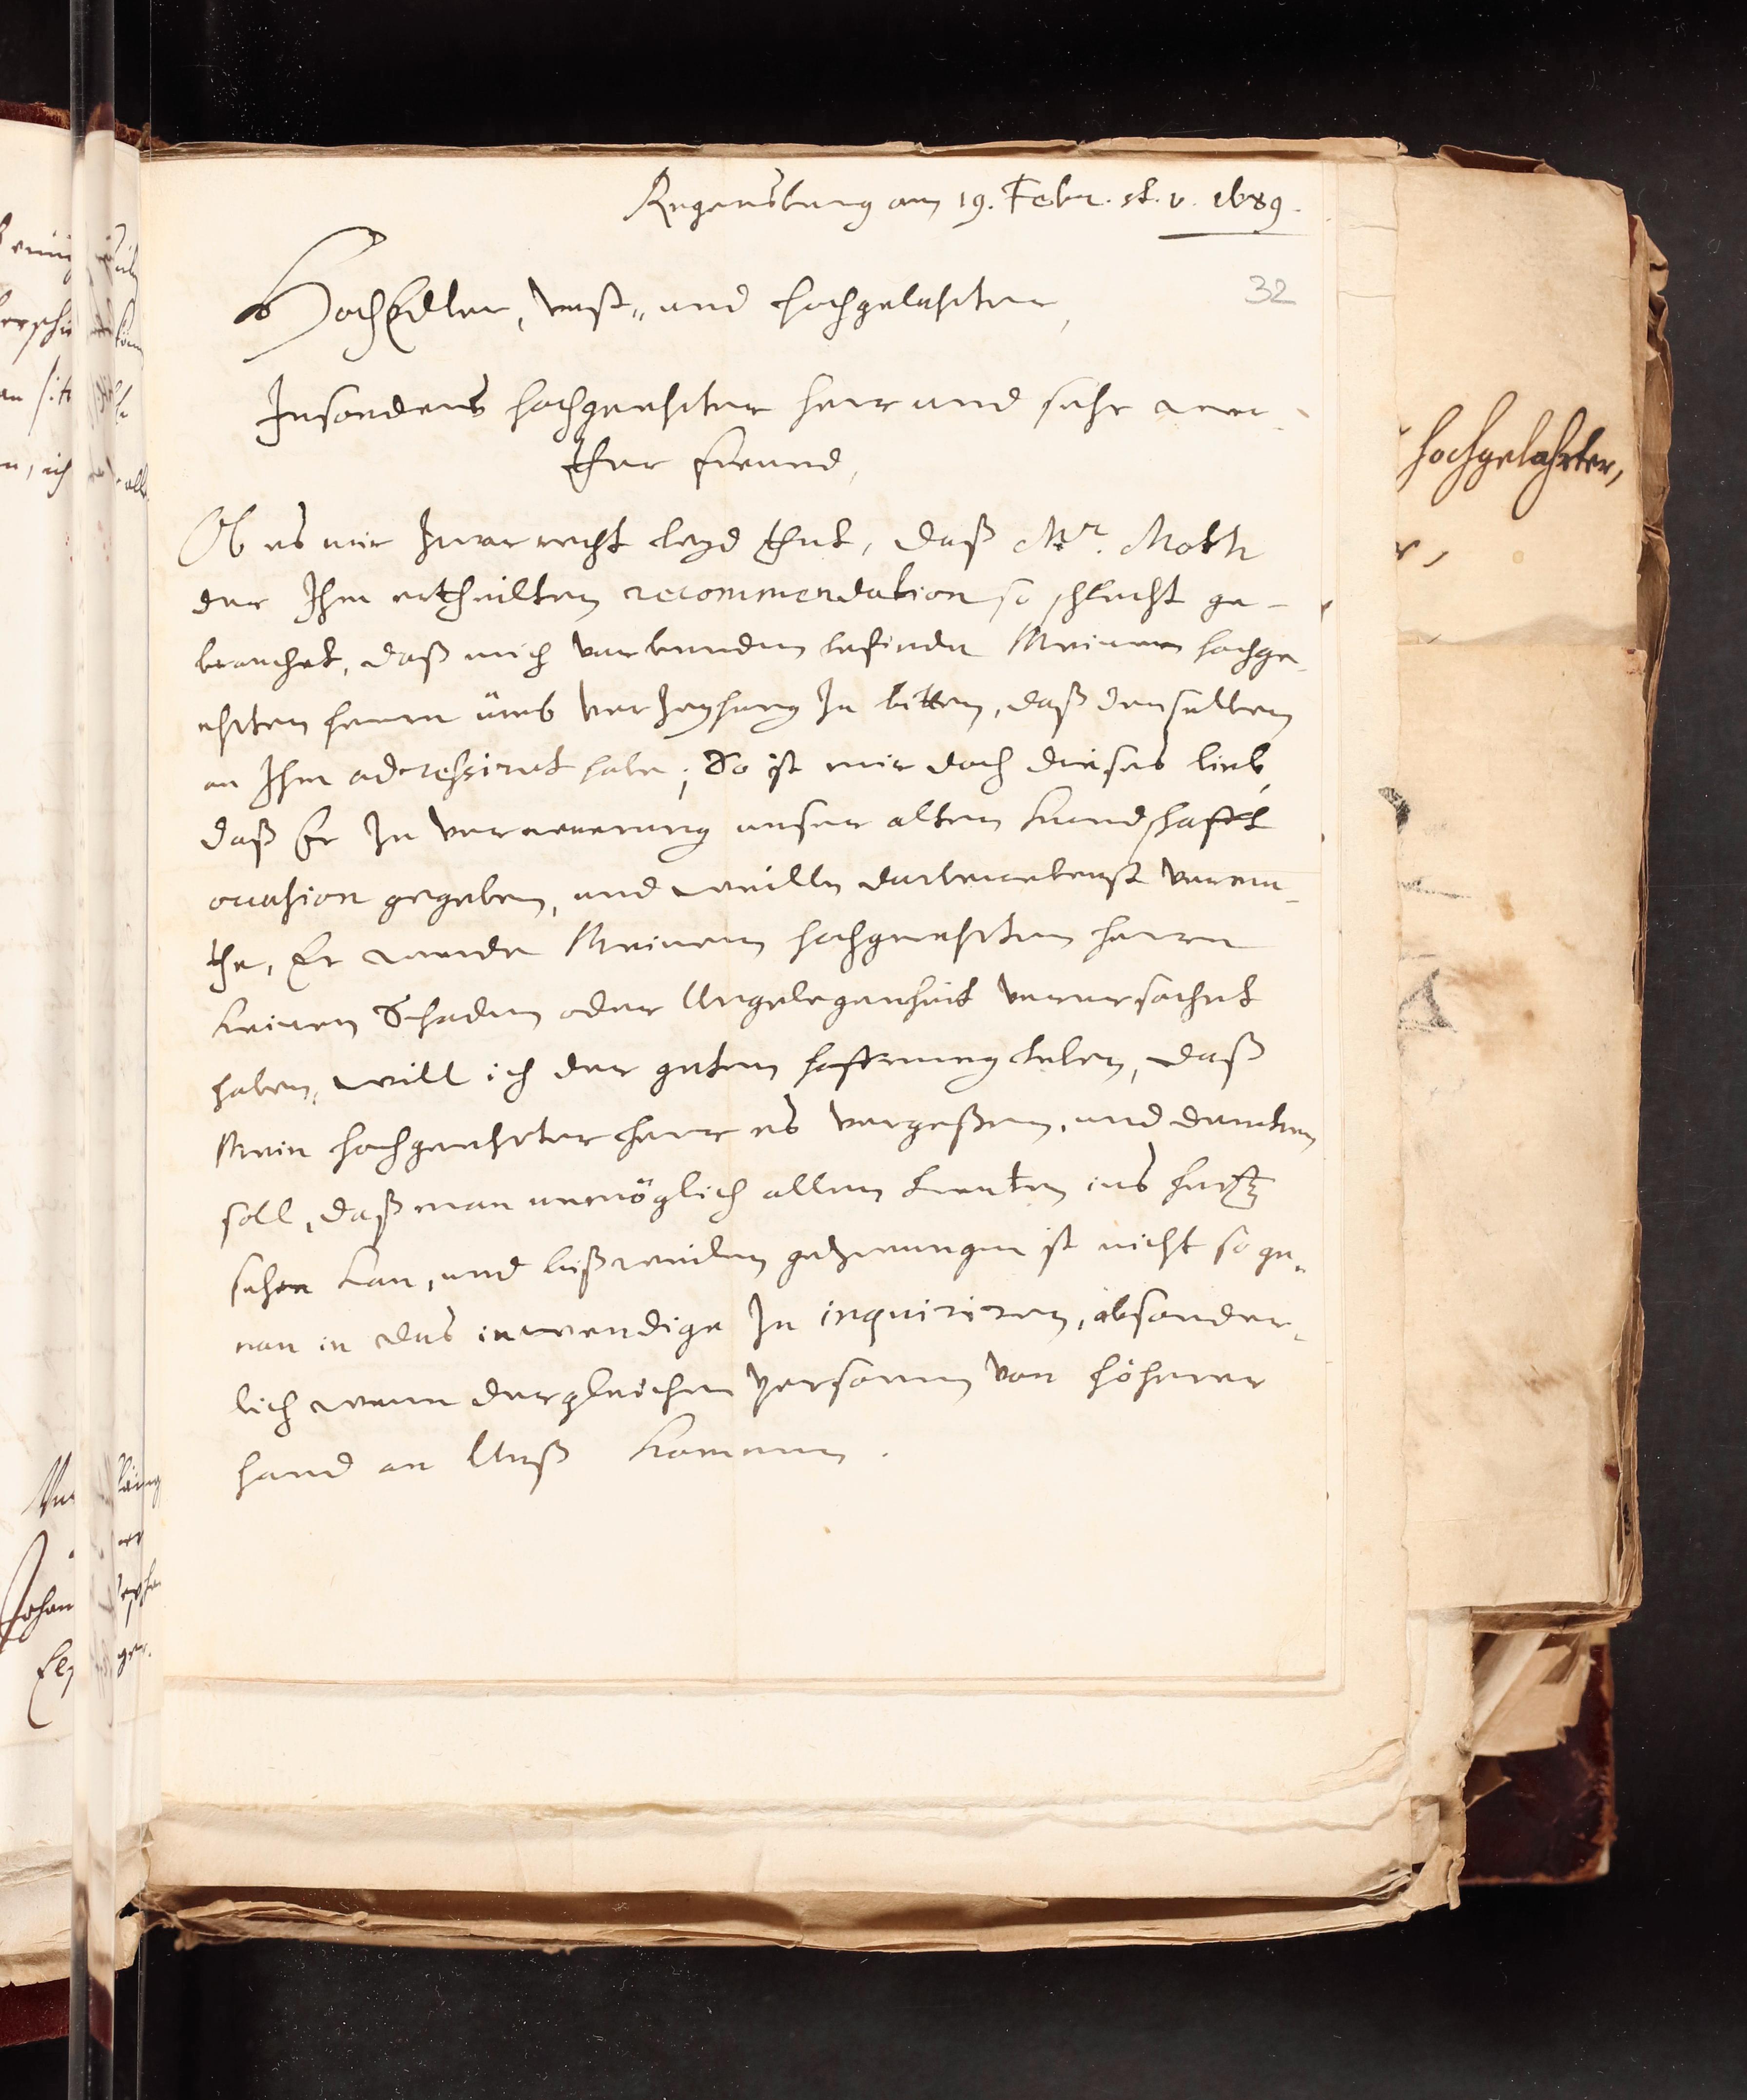 Regensburg am 19. Febr. st. v. 1689.
32
HochEdler, Vest„ und hochgelahrter,
Insonders hochgeehrter herr und sehr wer-
ther freund,
Ob es mir zwar recht leyd thut, daß Mr. Moth
der Ihm ertheilten recommendation so schlecht ge-
brauchet, daß mich verbunden befinde Meinen hochge-
ehrten herrn umb Verzeyhung zu bitten, daß denselben
an Ihm adressiret habe; So ist mir doch dieses lieb,
daß Er zu Verneuerung unser alten kundschafft
occasion gegeben, und weilln darbenebenst vermu-
the, Er werde Meinem hochgeehrten herrn
keinen Schaden oder Ungelegenheit verursachet
haben, will ich der guten hoffnung leben, daß
Mein hochgeehrter herr es vergeßen, und dencken
soll, daß man unmöglich allen Leuten ins hertz
sehen kan, und bißweilen gezwungen ist nicht so ge-
nau in das inwendige zu inquiriren, absonder-
lich wenn dergleichen personen von höherer
hand an Unß kommen.
hochgelahrter,